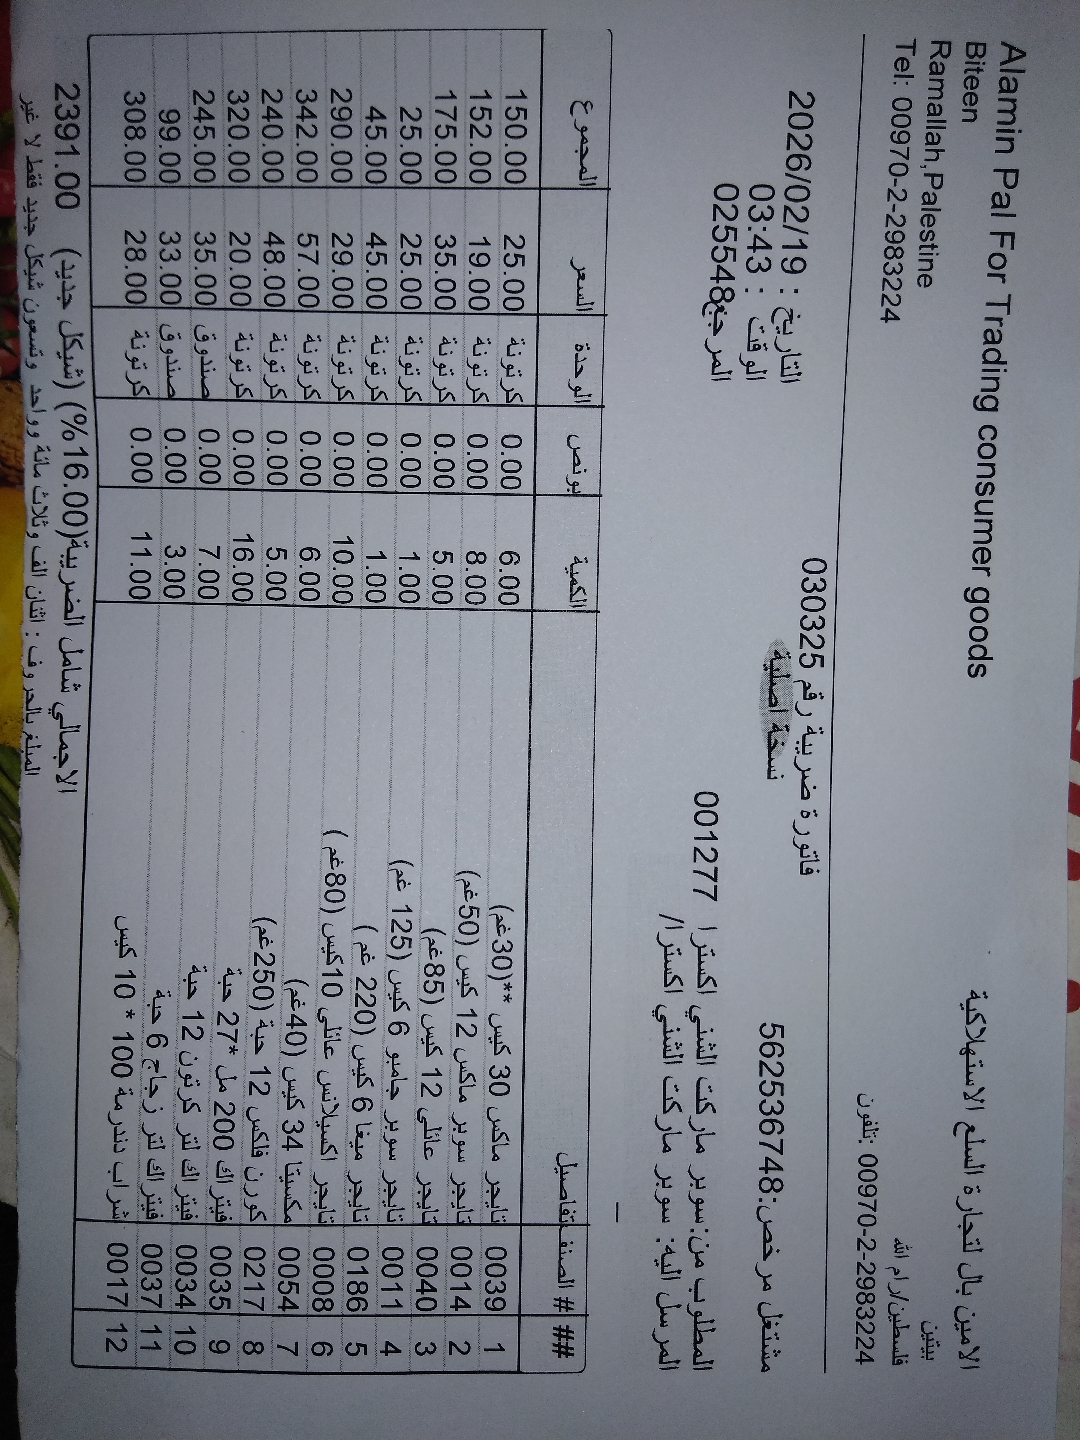 Alamin Pal For Trading consumer goods
Biteen
Ramallah,Palestine
Tel: 00970-2-2983224
الامين بال لتجارة السلع الاستهلاكية
بيتين
فلسطين/رام الله
تلفون: 00970-2-2983224
فاتورة ضريبة رقم 030325
نسخة اصلية
التاريخ : 2026/02/19
الوقت : 03:43
المرجع 025548
مشتغل مرخص: 562536748
المطلوب من: سوبر ماركت الشني اكسترا 001277
المرسل اليه: سوبر ماركت الشني اكسترا/
## # الصنف تفاصيل الكمية بونص الوحدة السعر المجموع
1 0039 تايجر ماكس 30 كيس **(30غم) 6.00 0.00 كرتونة 25.00 150.00
2 0014 تايجر سوبر ماكس 12 كيس (50غم) 8.00 0.00 كرتونة 19.00 152.00
3 0040 تايجر عائلي 12 كيس (85غم) 5.00 0.00 كرتونة 35.00 175.00
4 0011 تايجر سوبر جامبو 6 كيس (125 غم) 1.00 0.00 كرتونة 25.00 25.00
5 0186 تايجر ميغا 6 كيس (220 غم) 1.00 0.00 كرتونة 45.00 45.00
6 0008 تايجر اكسبلانس عائلي 10كيس (80غم) 10.00 0.00 كرتونة 29.00 290.00
7 0054 مكسيتا 34 كيس (40غم) 6.00 0.00 كرتونة 57.00 342.00
8 0217 كورن فلكس 12 حبة (250غم) 5.00 0.00 كرتونة 48.00 240.00
9 0035 فيتراك 200 مل *27 حبة 16.00 0.00 كرتونة 20.00 320.00
10 0034 فيتراك لتر كرتون 12 حبة 7.00 0.00 صندوق 35.00 245.00
11 0037 فيتراك لتر زجاج 6 حبة 3.00 0.00 صندوق 33.00 99.00
12 0017 شراب دندرمة 100 * 10 كيس 11.00 0.00 كرتونة 28.00 308.00
الاجمالي شامل الضريبة(16.00%) (شيكل جديد) 2391.00
المبلغ بالحروف : اثنان الف وثلاث مائة وواحد وتسعون شيكل جديد فقط لا غير